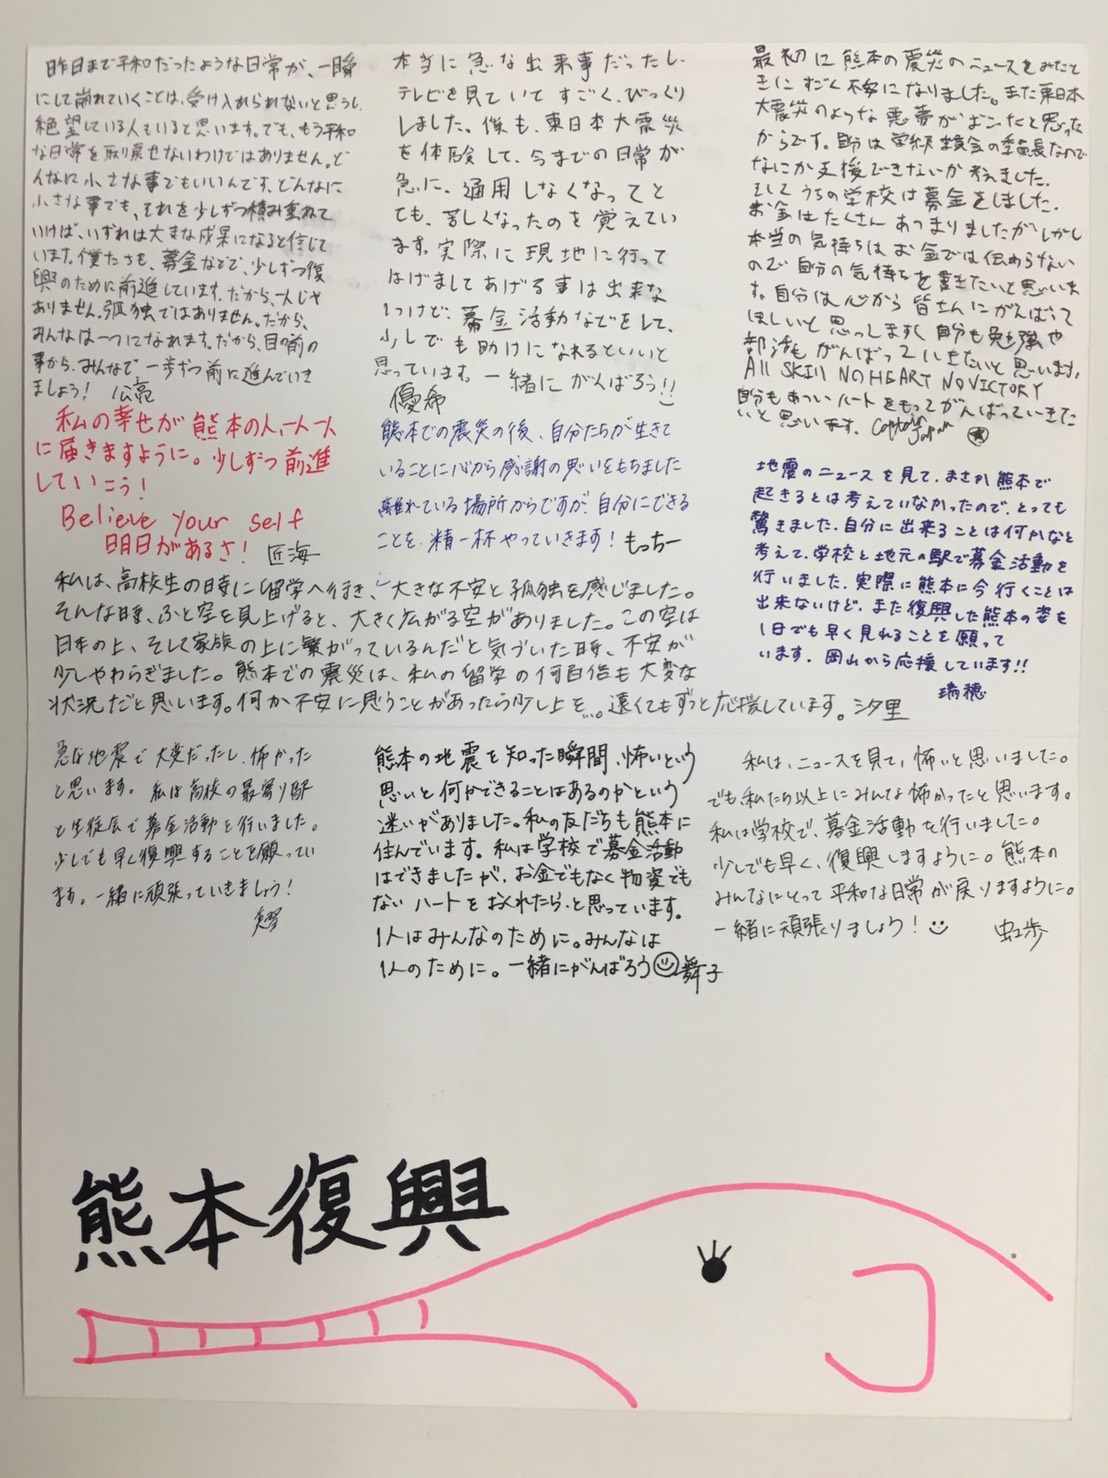 昨日まで平和だったような日常が、一瞬
にして崩れていくことは、受け入れられないと思うし、
絶望している人もいると思います。でも、もう平和
な日常を取り戻せないわけではありません。ど
んなに小さな事でもいいんです。どんなに
小さな事でも、それを少しずつ積み重ねて
いけば、いずれは大きな成果になると信じて
います。僕たちも、募金などで、少しずつ復
興のために前進しています。だから、一人じゃ
ありません。孤独ではありません。だから、
みんなは一つになれます。だから、目の前の
事から、みんなで一歩ずつ前に進んでいき
ましょう! 公亮
私の幸せが熊本の人、一人一人
に届きますように。少しずつ前進
していこう!
Believe your self
明日があるさ! 匠海
本当に急な出来事だったし、
テレビを見ていてすごく、びっくり
しました。僕も、東日本大震災
を体験して、今までの日常が
急に、通用しなくなってと
ても、苦しくなったのを覚えてい
ます。実際に現地に行って
はげましてあげる事は出来な
いけど、募金活動などをして、
少しでも助けになれるといいと
思っています。一緒にがんばろう!!
優希
熊本での震災の後、自分たちが生きて
いることに心から感謝の思いをもちました
離れている場所からですが、自分にできる
ことを、精一杯やっていきます! もっちー
最初に熊本の震災のニュースをみたと
きにすごく不安になりました。また東日本
大震災のような悪夢が
からです。自分は学級委員会の委員長なので
なにか支援できないか考えました。
そしてうちの学校は募金をしました。
お金はたくさんあつまりましたがしかし
本当の気持ちはお金では伝わらない
ので自分の気持ちを書きたいと思いま
す。自分は心から皆さんにがんばって
ほしいと思っします 自分も勉強や
部活もがんばっていきたいと思います。
All SKIll NO HEART NO VICTORY
自分もあついハートをもってがんばっていきた
いと思います。 Captain Japan
地震のニュースを見て、まさか熊本で
起きるとは考えていなかったので、とっても
驚きました。自分に出来ることは何かなと
考えて、学校と地元の駅で募金活動を
行いました。実際に熊本に今行くことは
出来ないけど、また復興した熊本の姿を
1日でも早く見れることを願って
います。岡山から応援しています!!
瑞穂
私は、高校生の時に留学へ行き、大きな不安と孤独を感じました。
そんな時、ふと空を見上げると、大きく広がる空がありました。この空は
日本の上、そして家族の上に繋がっているんだと気づいた時、不安が
少しやわらぎました。熊本での震災は、私の留学の何百倍も大変な
状況だと思います。何か不安に思うことがあったら少し上を…。遠くてもずっと応援しています。汐里
急な地震で大変だったし、怖かった
と思います。私は高校の最寄り駅
と生徒会で募金活動を行いました。
少しでも早く復興することを願ってい
ます。一緒に頑張っていきましょう!
熊本の地震を知った瞬間、怖いという
思いと何かできることはあるのかという
迷いがありました。私の友だちも熊本に
住んでいます。私は学校で募金活動
はできましたが、お金でもなく物資でも
ないハートをおくれたら、と思っています。
1人はみんなのために。みんなは
1人のために。一緒にがんばろう 舞子
私は、ニュースを見て、怖いと思いました。
でも、私たち以上にみんな怖かったと思います。
私は学校で、募金活動を行いました。
少しでも早く、復興しますように。熊本の
みんなにとって平和な日常が戻りますように。
一緒に頑張りましょう! 虹歩
熊本復興